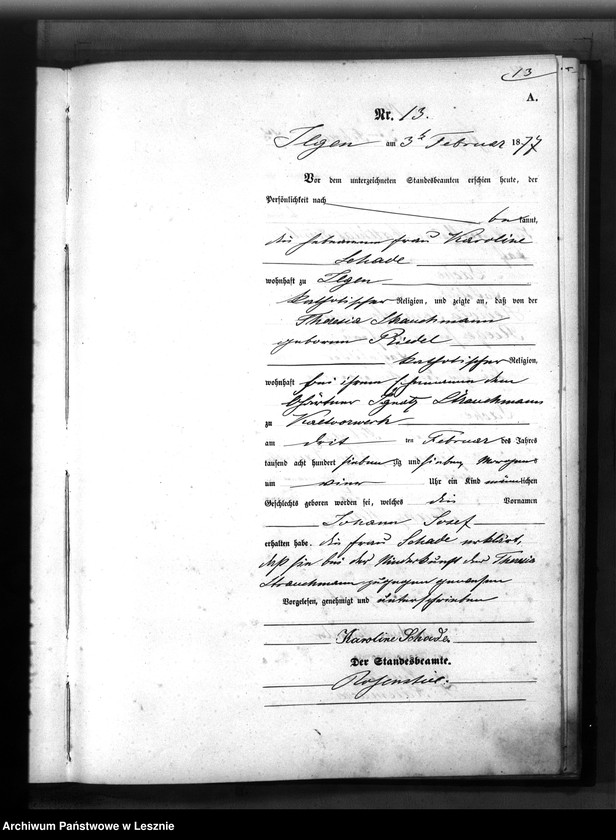 13
A.
Nr. 13.
Ilgen am 3t Februar 1877
Vor dem unterzeichneten Standesbeamten erschien heute, der
Persönlichkeit nach
bekannt,
die Hebamme Frau Karoline
Schade
wohnhaft zu Ilgen
katholischer Religion, und zeigte an, daß von der
Theresia Strauchmann
geborenen Riedel
katholischer Religion,
wohnhaft bei ihrem Ehemann dem
Gärtner Ignatz Strauchmann
zu Kaltvorwerk
am drit ten Februar des Jahres
tausend acht hundert siebenzig und sieben Morgens
um einer Uhr ein Kind männlichen
Geschlechts geboren worden sei, welches die Vornamen
Johann Josef
erhalten habe. Die Frau Schade erklärt,
daß sie bei der Niederkunft der Theresia
Strauchmann zugegen gewesen
Vorgelesen, genehmigt und unterschrieben
Karoline Schade.
Der Standesbeamte.
Rosenstiel.
Archiwum Państwowe w Lesznie